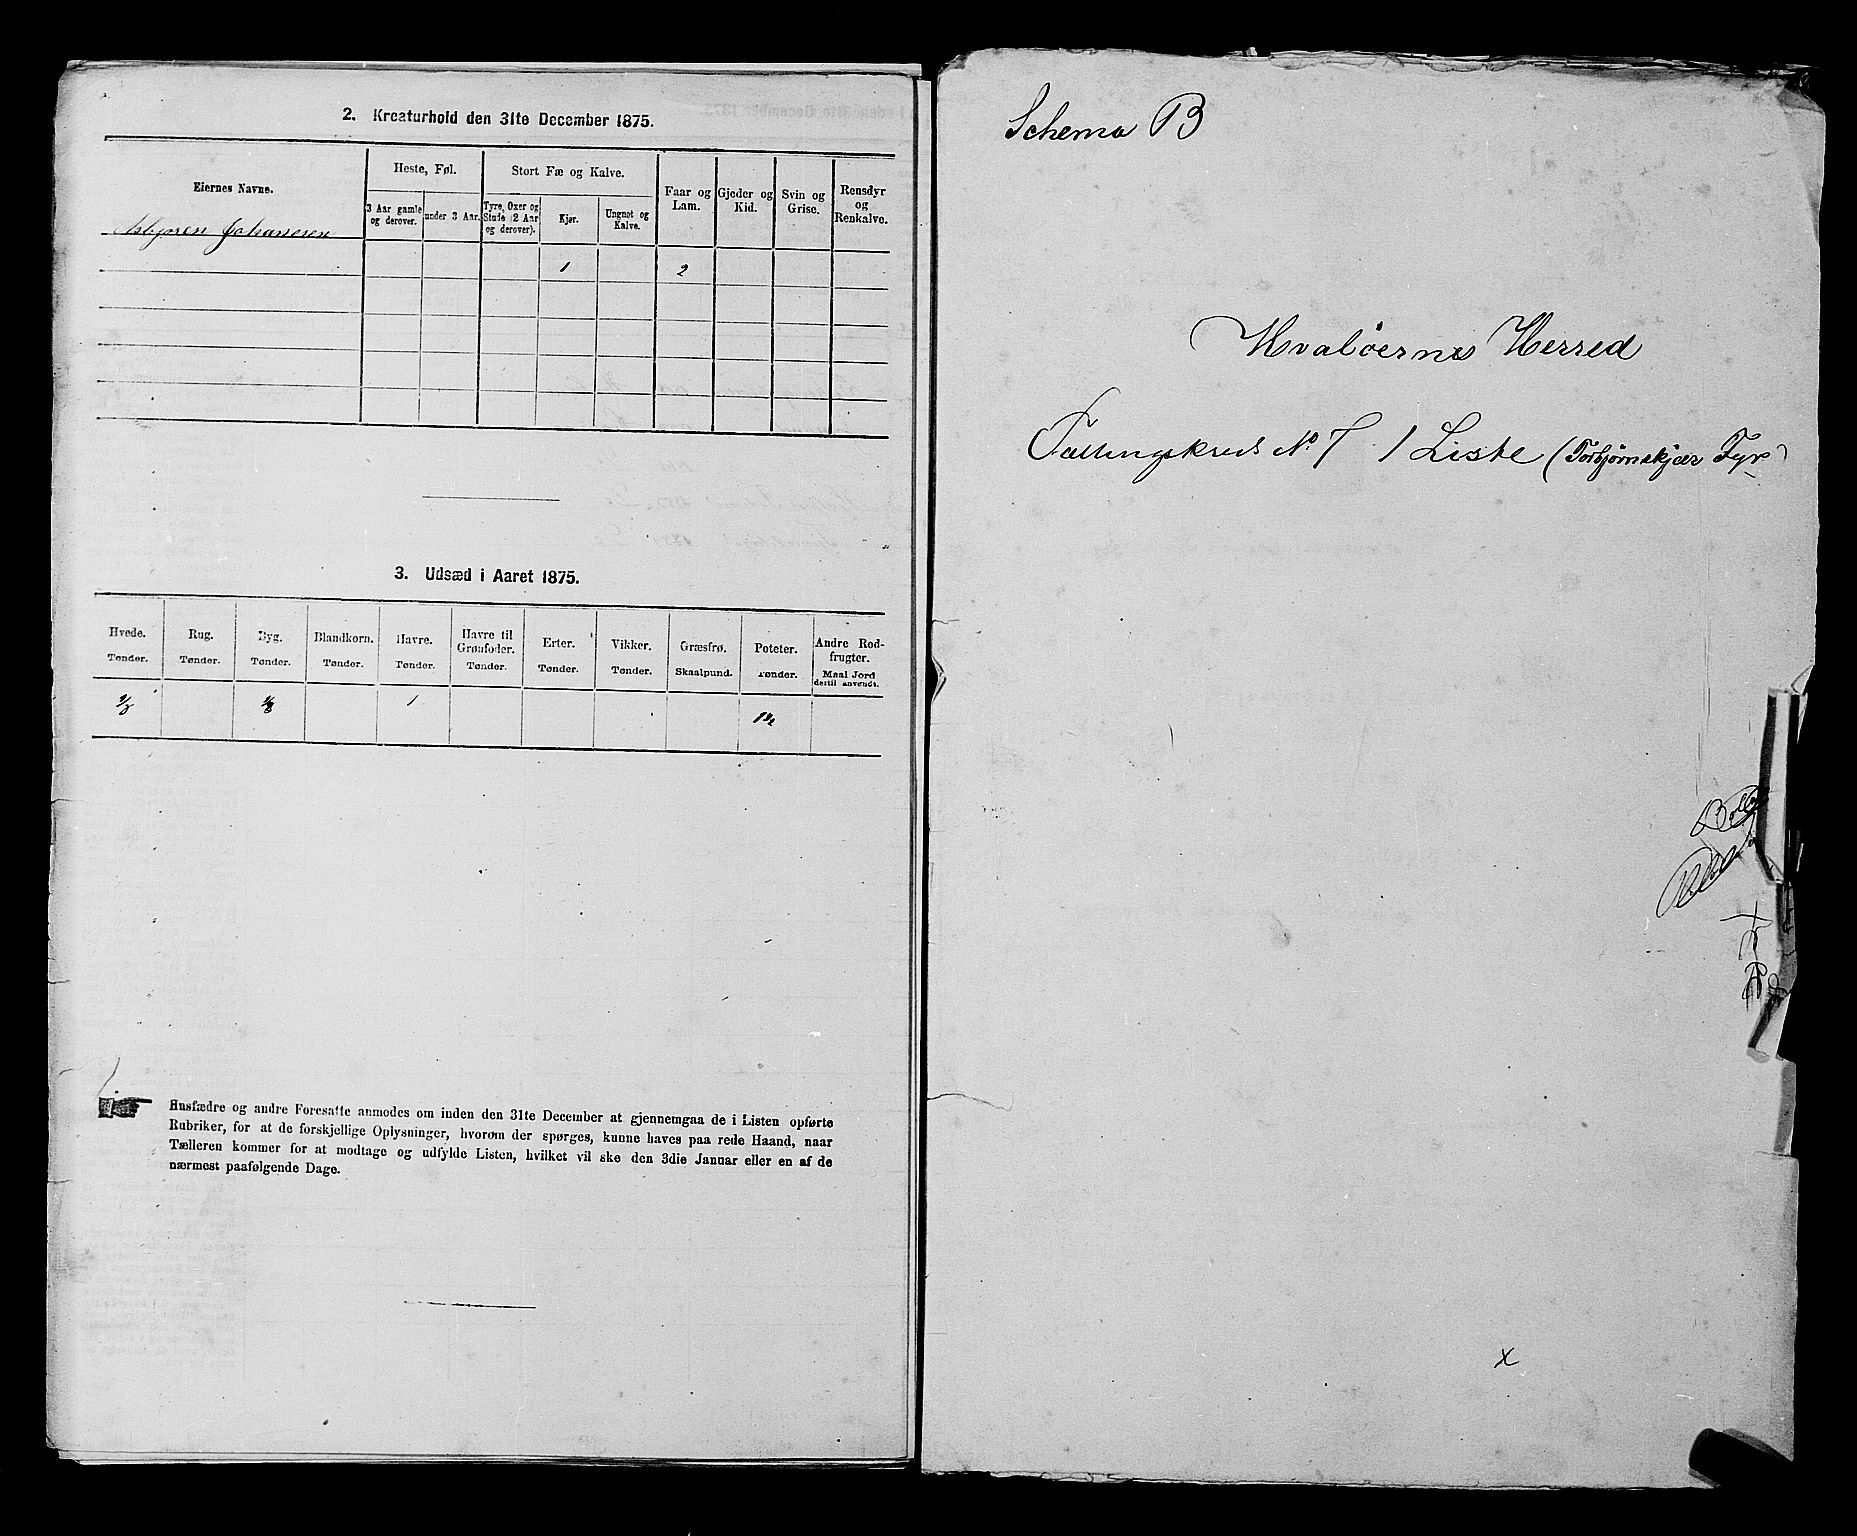 2. Kreaturhold den 31te December 1875.
Eiernes Navne.
Heste, Føl.
Stort Fæ og Kalve.
Faar og Lam.
Gjeder og Kid.
Svin og Grise.
Rensdyr og Renkalve.
3 Aar gamle og derover.
under 3 Aar.
Tyre, Oxer og Stude (2 Aar og derover).
Kjør.
Ungnøt og Kalve.
Asbjøren Johanesen
1 2
3. Udsæd i Aaret 1875.
Hvede. Rug. Byg. Blandkorn. Havre. Havre til Grønfoder. Erter. Vikker. Græsfrø. Poteter. Andre Rodfrugter.
Tønder. Tønder. Tønder. Tønder. Tønder. Tønder. Tønder. Tønder. Skaalpund. Tønder. Maal Jord dertil anvendt.
1
Husfædre og andre Foresatte anmodes om inden den 31te December at gjennemgaa de i Listen opførte
Rubriker, for at de forskjellige Oplysninger, hvorom der spørges, kunne haves paa rede Haand, naar
Tælleren kommer for at modtage og udfylde Listen, hvilket vil ske den 3die Januar eller en af de
nærmest paafølgende Dage.
Schema B
Hvaløernes Herred
Tællingskreds No 7 1 Liste (Torbjørnskjær Fyr)
x